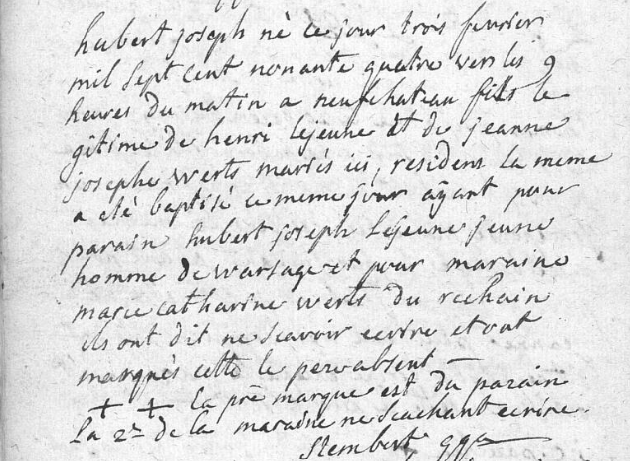 hubert joseph né ce jour trois fevrier
mil sept cent nonante quatre vers les 9
heures du matin a neufchateau fils le
gitime de henri lejeune et de jeanne
josephe werts mariés ici, residens la meme
a eté baptisé ce meme jour aÿant pour
parain hubert joseph Lejeune jeune
homme de warsage et pour maraine
marie catharine werts du rechain
ils ont dit ne scavoir ecrire et ont
marqués cette le pere absent —
+ + la pre marque est du parain
la 2e de la maraine ne scachant ecrire.
Stembert